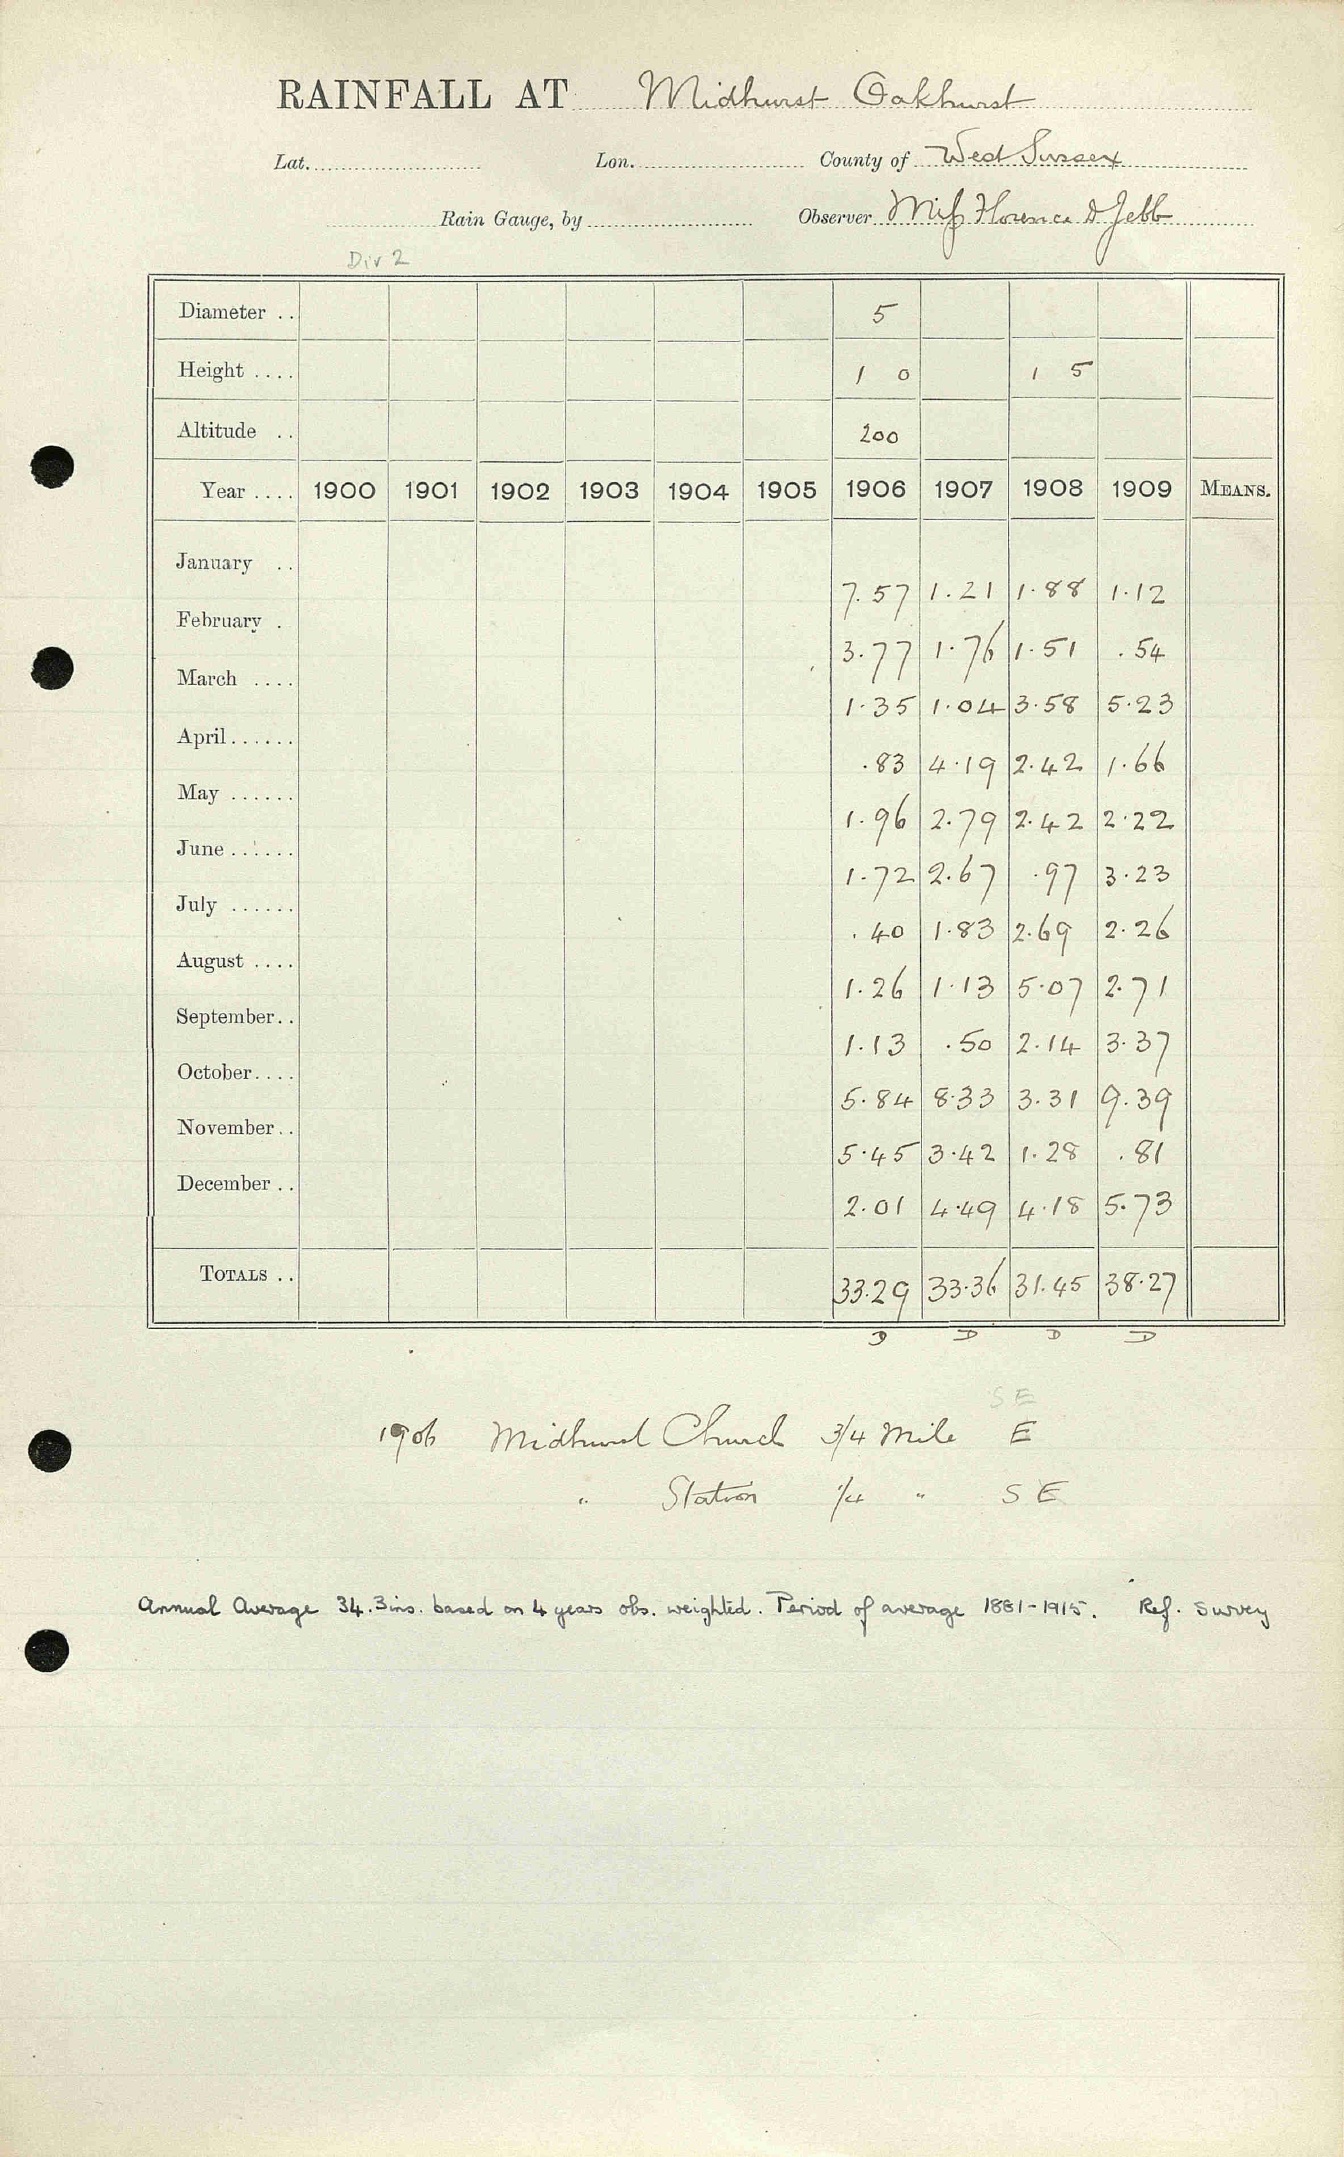 RAINFALL AT Midhurst Oakhurst
Lat. Lon. County of West Sussex
Rain Gauge, by Observer Miss Florence D Jebb
Div 2
Diameter .. 5
Height .... 1 0 1 5
Altitude .. 200
Year .... 1900 1901 1902 1903 1904 1905 1906 1907 1908 1909 MEANS.
January .. 7.57 1.21 1.88 1.12
February . 3.77 1.76 1.51 .54
March .... 1.35 1.04 3.58 5.23
April...... .83 4.19 2.42 1.66
May ...... 1.96 2.79 2.42 2.22
June ...... 1.72 2.67 .97 3.23
July ...... .40 1.83 2.69 2.26
August .... 1.26 1.13 5.07 2.71
September.. 1.13 .50 2.14 3.37
October.... 5.84 8.33 3.31 9.39
November.. 5.45 3.42 1.28 .81
December .. 2.01 4.49 4.18 5.73
TOTALS .. 33.29 33.36 31.45 38.27
D D D D
S E
1906 Midhurst Church 3/4 Mile E
" Station 1/4 " S E
Annual Average 34.3ins. based on 4 years obs. weighted. Period of average 1881-1915. Ref. Survey